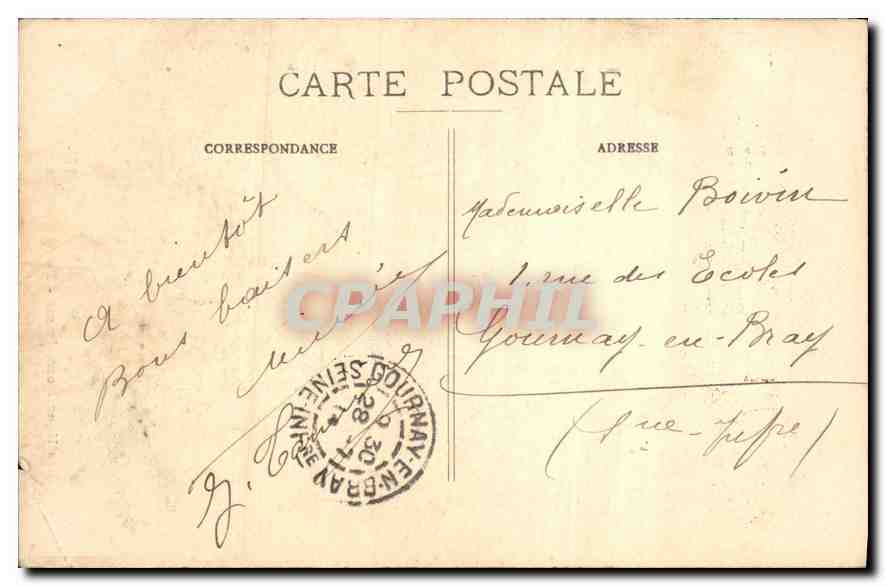 CARTE POSTALE
CORRESPONDANCE
ADRESSE
A bientôt
Bons baisers
Mademoiselle Boivin
1. rue des Ecoles
Gournay-en-Bray
(Sne-Infre)
GOURNAY-EN-BRAY
SEINE-INFRE
9 30
28
CPAPHIL